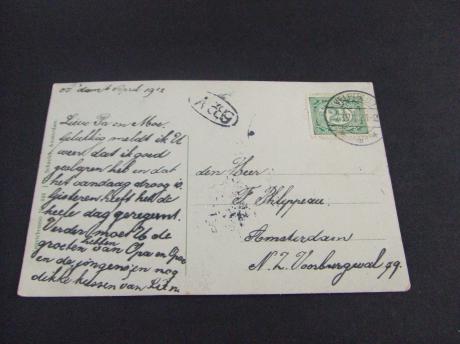 April 1912
Lieve Pa en Moe.
Gelukkig meldt ik U
even, dat ik goed
geslapen heb en dat
het vandaag droog is.
Gisteren heeft het de
heele dag geregend.
Verder moet U de
groeten hebben van Opa en Opoe
en de jongens en nog
dikke kussen van
den Heer
F. Philippeau
Amsterdam
N.Z. Voorburgwal 99.
2½